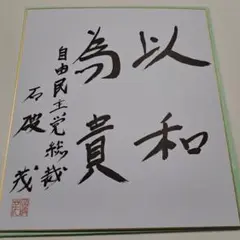 以和
為貴
自由民主党総裁
石破茂